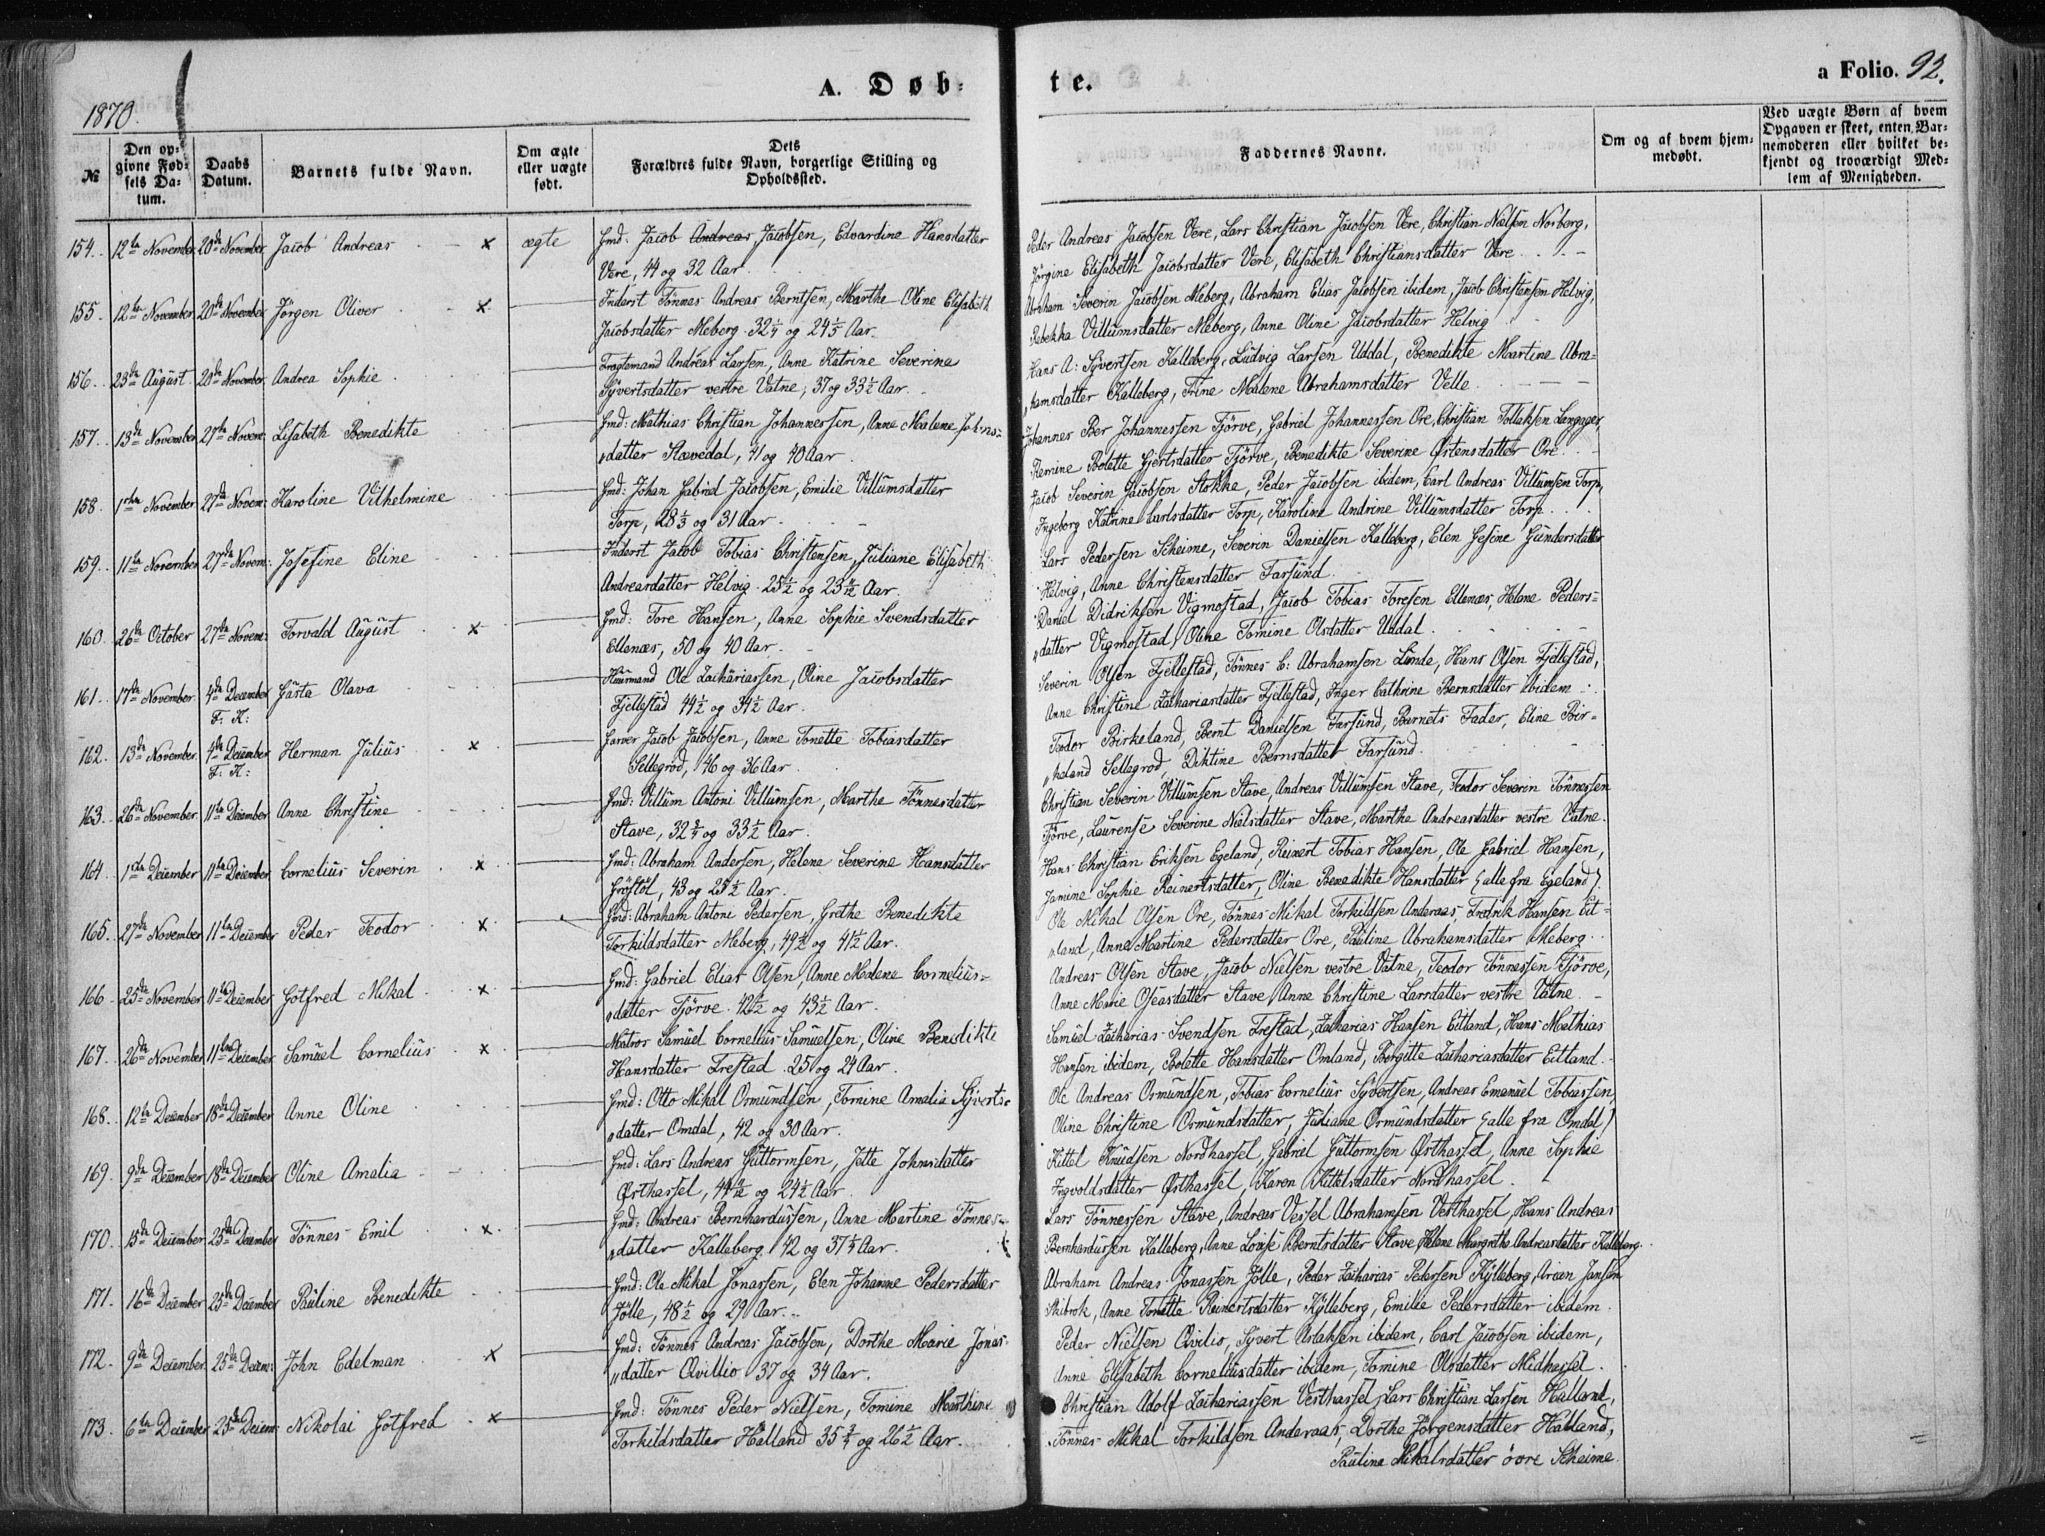 A. Døb-
te.
a Folio. 92.
1870.
№
Den op-
givne Fød-
sels Da-
tum.
Daabs
Datum.
Barnets fulde Navn.
Om ægte
eller uægte
født.
Dets
Forældres fulde Navn, borgerlige Stilling og
Opholdssted.
Faddernes Navne.
Om og af hvem hjem-
medøbt.
Ved uægte Børn af hvem
Opgaven er skeet, enten Bar-
nemoderen eller hvilket be-
kjendt og troværdigt Med-
lem af Menigheden.
154. 12te November 20de November Jacob Andreas × ægte Gmd: Jacob Andreas Jacobsen, Edvardine Hansdatter
Vere, 44 og 32 Aar.
Peder Andreas Jacobsen Vere, Lars Christian Jacobsen Vere, Christian Nielsen Norberg,
Jörgine Elisabeth Jacobsdatter Vere, Elisabeth Christiansdatter Vere
155. 12te November 20de November Jörgen Oliver × Inderst Tönnes Andreas Berntsen, Marthe Oline Elisabeth
Jacobsdatter Meberg 32 1/4 og 24 1/5 Aar.
Abraham Severin Jacobsen Meberg, Abraham Elias Jacobsen ibidem, Jacob Christensen Helvig,
Rebekka Villumsdatter Meberg, Anne Oline Jacobsdatter Helvig
156. 23de August 20de November Andrea Sophie Fragtemand Andreas Larsen, Anne Katrine Severine
Syvertsdatter vestre Vatne, 37 og 33 1/2 Aar.
Hans A: Syvertsen Kalleberg, Ludvig Larsen Uddal, Benedikte Martine Abra-
„hamsdatter Kalleberg, Trine Malene Abrahamsdatter Velle
157. 13de November 27de Novem: Lisabeth Benedikte Gmd: Mathias Christian Johannessen, Anne Malene Johns-
„datter Stavedal, 41 og 40 Aar.
Johannes Ber Johannessen Tjörve, Gabriel Johannessen Ore, Christian Tollaksen Langager,
Remine Bolette Gjertsdatter Tjörve, Benedikte Severine Østensdatter Ore
158. 1ste November 27de Novem: Karoline Vilhelmine Gmd: Johan Gabriel Jacobsen, Emilie Villumsdatter
Torp, 28 1/3 og 31 Aar.
Jacob Severin Jacobsen Stokke, Peder Jacobsen ibidem, Carl Andreas Villumsen Torp,
Ingeborg Katrine Carlsdatter Torp, Karoline Andrine Villumsdatter Torp
159. 11te November 27de Novem: Josefine Eline Inderst Jacob Tobias Christensen, Juliane Elisabeth
Andreasdatter Helvig 25 1/2 og 23 Aar.
Lars Pedersen Scheime, Severin Danielsen Kalleberg, Elen Gesine Gundersdatter
Helvig, Anne Christensdatter Farsund
160. 26de October 27de Novem: Torvald August × Gmd: Tore Hansen, Anne Sophie Svendsdatter
Ellenæs, 50 og 40 Aar.
Daniel Didriksen Vigmostad, Jacob Tobias Toresen Ellenæs, Helene Peders-
„datter Vigmostad, Oline Tomine Olsdatter Uddal
161. 17de November 4de December Gusta Olava Huurmand Ole Zachariassen, Oline Jacobsdatter
F: K:
Fjellestad 44 1/2 og 34 1/2 Aar.
Severin Olsen Fjellestad, Tönnes C: Abrahamsen Lunde, Hans Olsen Fjellestad,
Anne Christine Zachariasdatter Fjellestad, Inger Cathrine Bernsdatter ibidem
162. 13de November 4de December Herman Julius × Garver Jacob Jacobsen, Anne Tonette Tobiasdatter
F: K:
Sellegrod, 46 og 36 Aar.
Teodor Birkeland, Bernt Danielsen Farsund, Barnets Fader, Eline Bir-
„keland Sellegrod, Diktine Bernsdatter Farsund
163. 26de November 11te December Anne Christine Gmd: Villum Antoni Villumsen, Marthe Tönnesdatter
Stave, 32 3/4 og 33 1/2 Aar.
Christian Severin Villumsen Stave, Andreas Villumsen Stave, Teodor Severin Tönnessen
Tjörve, Laurense Severine Nielsdatter Stave, Marthe Andreasdatter vestre Vatne.
164. 1ste December 11te December Cornelius Severin × Gmd: Abraham Andersen, Helene Severine Hansdatter
Fröstöl, 43 og 23 1/2 Aar.
Hans Christian Eriksen Egeland, Reinert Tobias Hansen, Ole Gabriel Hansen,
Jamine Sophie Reinertsdatter, Oline Benedikte Hansdatter (alle fra Egeland).
165. 27de November 11te December Peder Teodor × Gmd: Abraham Antoni Pedersen, Grethe Benedikte
Torkildsdatter Meberg, 49 1/2 og 41 1/2 Aar.
Ole Mikal Olsen Ore, Tönnes Mikal Torkildsen Anderaas, Fredrik Hansen Eit-
„land, Anne Martine Pedersdatter Ore, Pauline Abrahamsdatter Meberg
166. 25de November 11te December Gotfred Mikal × Gmd: Gabriel Elias Olsen, Anne Malene Cornelius-
„datter Tjörve 42 1/2 og 43 1/2 Aar.
Andreas Olsen Stave, Jacob Nielsen vestre Vatne, Teodor Tönnessen Tjörve,
Anne Marie Oseasdatter Stave, Anne Christine Larsdatter vestre Vatne
167. 26de November 11te December Samuel Cornelius × Matros Samuel Cornelius Samuelsen, Oline Benedikte
Hansdatter Frestad 25 og 24 Aar.
Samuel Zacharias Svendsen Frestad, Zacharias Hansen Eitland, Hans Mathias
Hansen ibidem, Bolette Hansdatter Omland, Börgitte Zachariasdatter Eitland
168. 12te December 18de December Anne Oline Gmd: Otto Mikal Osmundsen, Tomine Amalia Syverts-
„datter Omdal, 42 og 30 Aar.
Ole Andreas Osmundsen, Tobias Cornelius Syvertsen, Andreas Emanuel Tobiassen,
Oline Christine Osmundsdatter, Juliane Osmundsdatter (alle fra Omdal)
169. 9de December 18de December Oline Amalia Gmd: Lars Andreas Guttormsen, Jette Johnsdatter
Østhassel, 44 og 24 1/2 Aar.
Kittel Knudsen Nordhassel, Gabriel Guttormsen Østhassel, Anne Sophie
Ingvoldsdatter Østhassel, Karen Kittelsdatter Nordhassel.
170. 15de December 25de December Tönnes Emil × Gmd: Andreas Bernhardussen, Anne Martine Tönnes-
„datter Kalleberg 42 og 37 1/4 Aar.
Lars Tönnessen Stave, Andreas Vessel Abrahamsen Vesthassel, Hans Andreas
Bernhardussen Kalleberg, Anne Lovise Berntsdatter Stave, Helene Margrethe Andreasdatter Kalleberg.
171. 16de December 25de December Pauline Benedikte Gmd: Ole Mikal Jonassen, Elen Johanne Pedersdatter
Jölle, 48 1/2 og 29 Aar.
Abraham Andreas Jonassen Jölle, Peder Zacharias Pedersen Kjölleberg, Arien Jansen
Skibrok, Anne Tonette Reinertsdatter Kjölleberg, Emilie Pedersdatter ibidem
172. 9de December 25de Decem: John Edelman × Gmd: Tönnes Andreas Jacobsen, Dorthe Marie Jonas-
„datter Qvillio 37 og 34 Aar.
Peder Nielsen Qvilio, Syvert Aslaksen ibidem, Carl Jacobsen ibidem,
Anne Elisabeth Corneliusdatter ibidem, Tomine Olsdatter Midhassel.
173. 6te December 25de Decem: Nikolai Gotfred × Gmd: Tönnes Peder Nielsen, Tomine Marthine
Torkildsdatter Halland 35 3/4 og 26 1/2 Aar.
Christian Adolf Zachariassen Vesthassel, Lars Christian Larsen Halland,
Tönnes Mikal Torkildsen Anderaas, Dorthe Jörgensdatter Halland,
Pauline Mikalsdatter övre Scheime